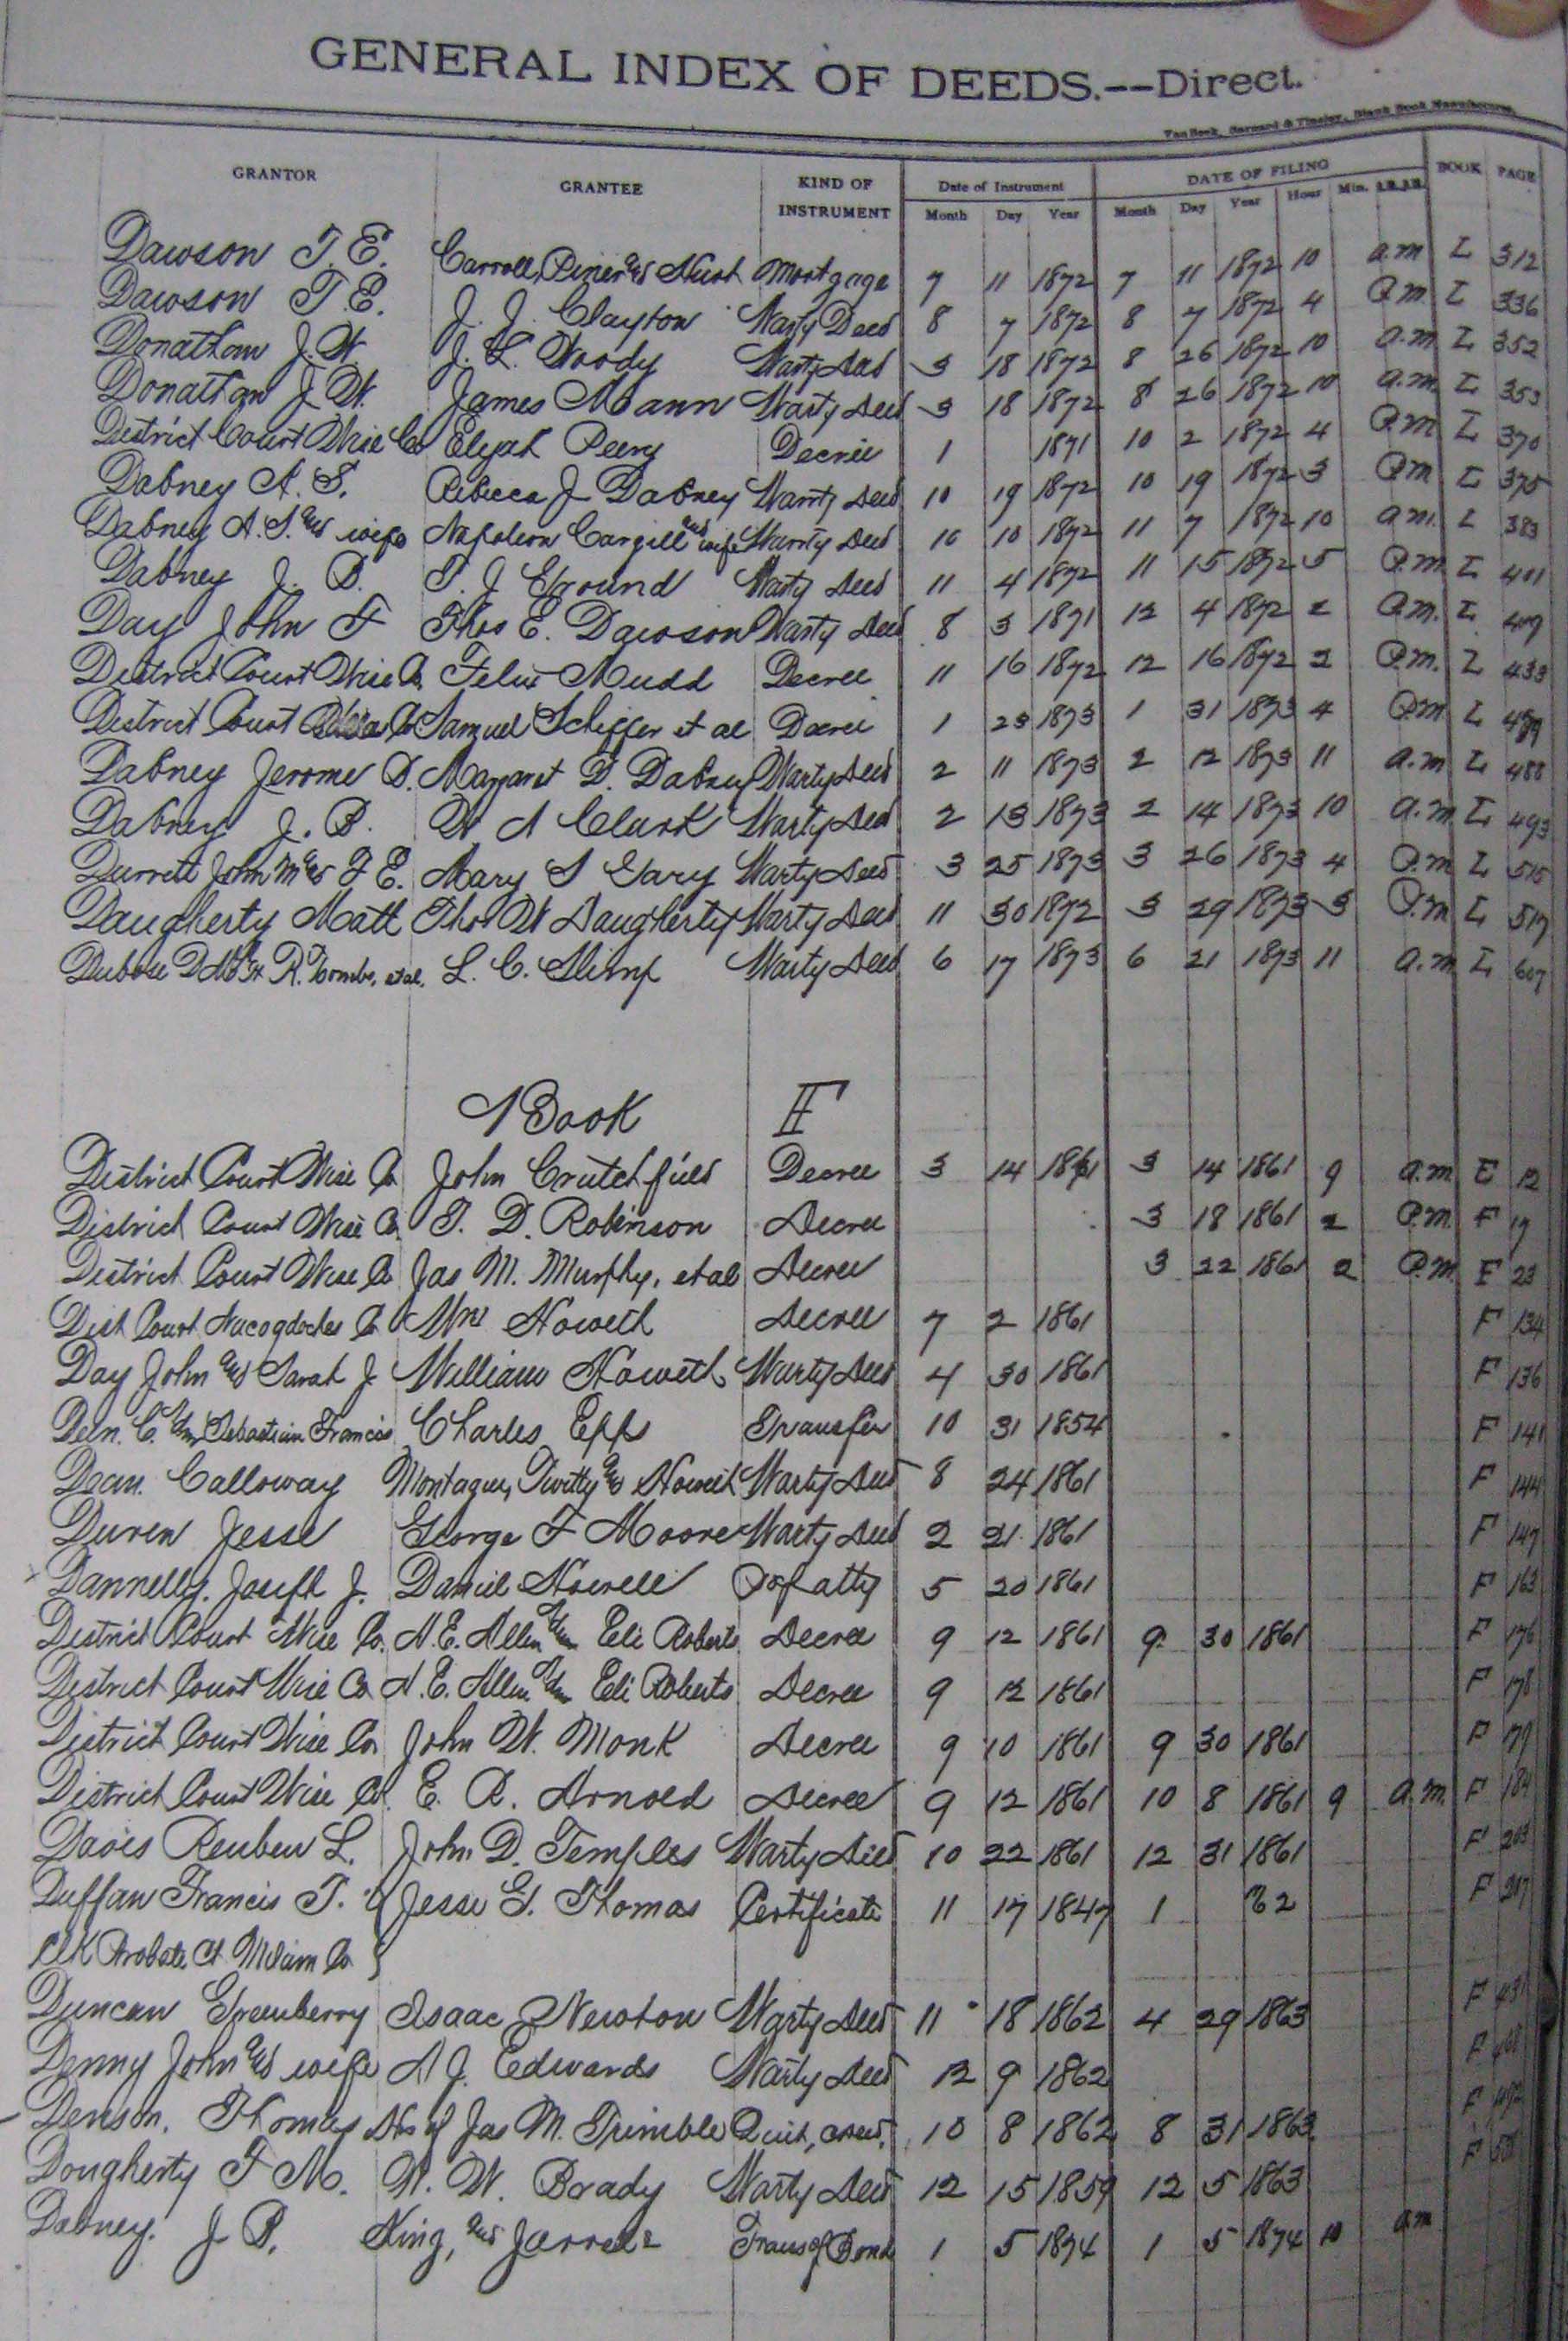 GENERAL INDEX OF DEEDS.--Direct.
GRANTOR GRANTEE KIND OF INSTRUMENT Date of Instrument DATE OF FILING BOOK PAGE
Month Day Year Month Day Year Hour Min.
Dawson T. E. Carroll, Piner and Hunt Mortgage 7 11 1872 7 11 1872 10 a.m L 312
Dawson T. E. J. J. Clayton Warty Deed 8 7 1872 8 7 1872 4 P.m. L 336
Donathan J. W. J. L. Woody Warty Deed 3 18 1872 8 26 1872 10 a.m L 352
Donathan J. W. James Mann Warty Deed 3 18 1872 8 26 1872 10 a.m. L 353
District Court Wise Co Elijah Peery Decree 1 1871 10 2 1872 4 P.m L 370
Dabney A. S. Rebecca J Dabney Warrty Deed 10 19 1872 10 19 1872 3 P.m L 375
Dabney A. S. and wife Napoleon Cargill and wife Warrty Deed 10 10 1872 11 7 1872 10 a.m. L 383
Dabney J. B. T. J Ground Warty Deed 11 4 1872 11 15 1872 5 P.m. L 401
Day John F Thos E. Dawson Warty Deed 8 3 1871 12 4 1872 2 P.m. L 409
District Court Wise Co. Felix Mudd Decree 11 16 1872 12 16 1872 2 P.m. L 433
District Court Co Samuel Schiffer et al Decree 1 23 1873 1 31 1873 4 P.m L
Dabney Jerome B. Margaret D. Dabney Warty Deed 2 11 1873 2 12 1873 11 a.m L 488
Dabney J. B. W A Clark Warty Deed 2 13 1873 2 14 1873 10 a.m L 493
Durrett John M and F E. Mary S Gary Warty Deed 3 25 1873 3 26 1873 4 P.m L 515
Daugherty Matt Tho W Daugherty Warty Deed 11 30 1872 3 29 1873 3 P.m L 517
Dubose D M R. Toombs, et al. L. C. Slimp Warty Deed 6 17 1873 6 21 1873 11 a.m L 607
Book F
District Court Wise Co John Crutchfield Decree 3 14 1861 3 14 1861 9 a.m E 12
District Court Wise Co. T. D. Robinson Decree 3 18 1861 2 P.m. F 17
District Court Wise Co Jas M. Murphy, et al Decree 3 22 1861 2 P.m. F 23
Dist Court Nacogdoches Co Wm Howeth Decree 7 2 1861 F 134
Day John and Sarah J William Howeth Warty Deed 4 30 1861 F 136
C. Adm Sebastian Francois Charles Epps Transfer 10 31 1854 F 141
Dean Calloway Montague, Twitty and Howeth Warty Deed 8 24 1861 F 144
Duren Jesse George F Moore Warty Deed 2 21 1861 F 147
Dannelly. Joseph J. Daniel Howell P of atty 5 20 1861 F 163
District Court Wise Co. A. E. Allen Adm Eli Roberts Decree 9 12 1861 9 30 1861 F 176
District Court Wise Co A. E. Allen Adm Eli Roberts Decree 9 12 1861 F 178
District Court Wise Co John W. Monk Decree 9 10 1861 9 30 1861 F 179
District Court Wise Co. E. R. Arnold Decree 9 12 1861 10 8 1861 9 a.m. F 184
Davis Reuben L. John D. Temples Warty Deed 10 22 1861 12 31 1861 F 203
Duffau Francis T. Jesse G. Thomas Certificate 11 17 1847 1 62 F 207
Clk Probate Ct Milam Co
Duncan Greenberry Isaac Newton Warty Deed 11 18 1862 4 29 1863 F 431
Denny John and wife A J. Edwards Warty Deed 12 9 1862 F
Denson. Thomas Hrs of Jas M. Trimble Quit, Deed. 10 8 1862 8 31 1863 F
Dougherty F M. W. W. Brady Warty Deed 12 15 1859 12 5 1863 F
Dabney. J B. King, and Jarrell Trans of Bond 1 5 1874 1 5 1874 10 am